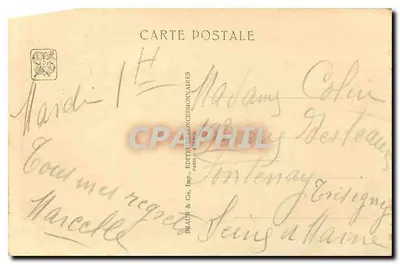 CARTE POSTALE
Mardi 1H
Tous mes regrets
Marcelle
BRAUN & Cie, Imp., EDITEURS-CONCESSIONNAIRES
CPARAMA
Madame Colin
rue
Fontenay
Trésigny
Seine et Marne